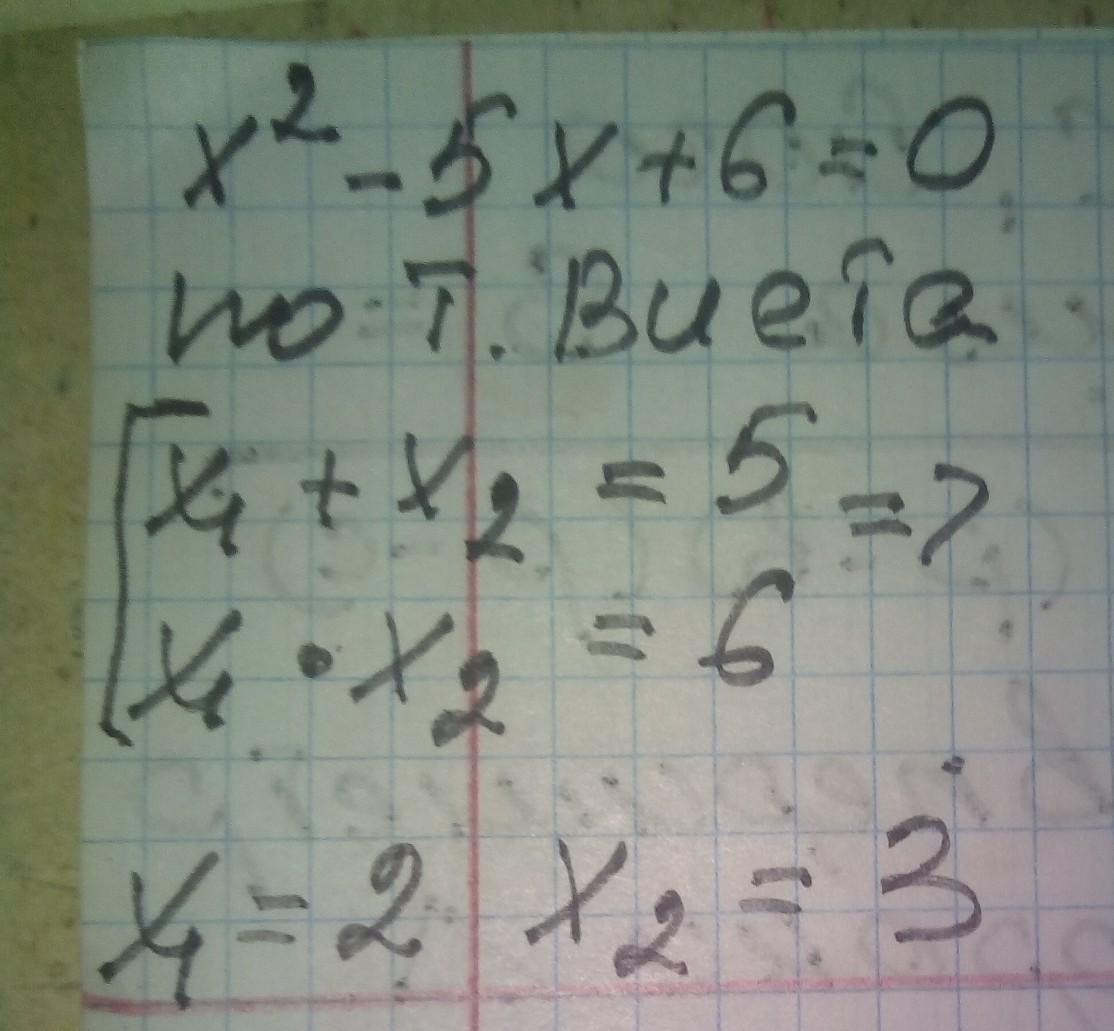 x² - 5x + 6 = 0
по т. Виета
[x₁ + x₂ = 5 =>
x₁ • x₂ = 6
x₁ = 2 x₂ = 3